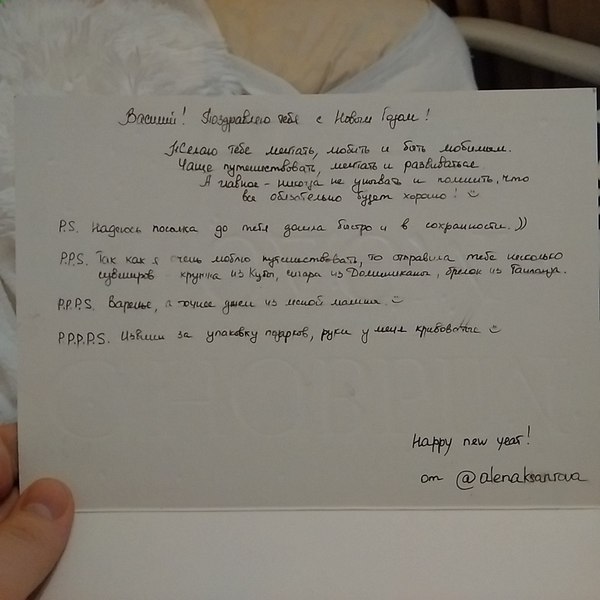 Василий! Поздравляю тебя с Новым Годом!
Желаю тебе мечтать, любить и быть любимым.
Чаще путешествовать, мечтать и развиваться.
А главное - никогда не унывать и помнить, что
все обязательно будет хорошо!
P.S. Надеюсь посылка до тебя дошла быстро и в сохранности.))
P.P.S. Так как я очень люблю путешествовать, то отправила тебе несколько
сувениров - кружка из Кубы, сигара из Доминиканы, брелок из Таиланда.
P.P.P.S. Варенье, а точнее джем из лесной малины.
P.P.P.P.S. Извини за упаковку подарков, руки у меня кривоваты
Happy new year!
от